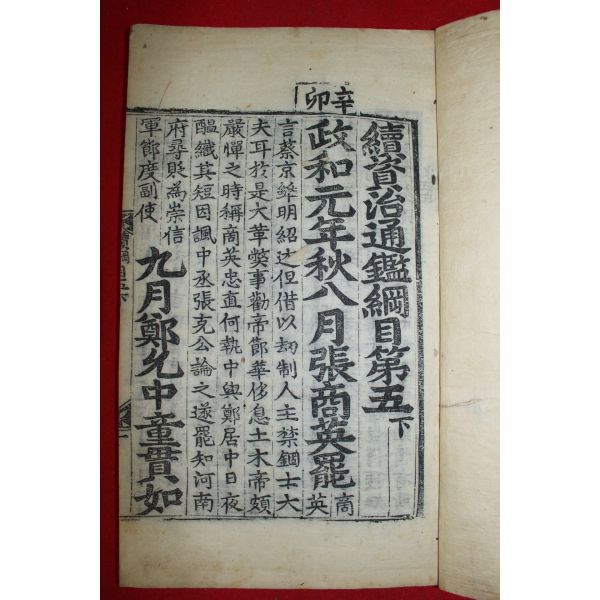 續資治通鑑綱目第五下
辛卯
政和元年秋八月張商英罷商英
言蔡京雖明紹述但借以刼制人主禁錮士大
夫耳於是大革弊事勸帝節華侈息土木帝頗
嚴憚之時稱商英忠直何執中與鄭居中日夜
醖織其短因諷中丞張克公論之遂罷知河南
府尋貶為崇信
軍節度副使
九月鄭允中童貫如